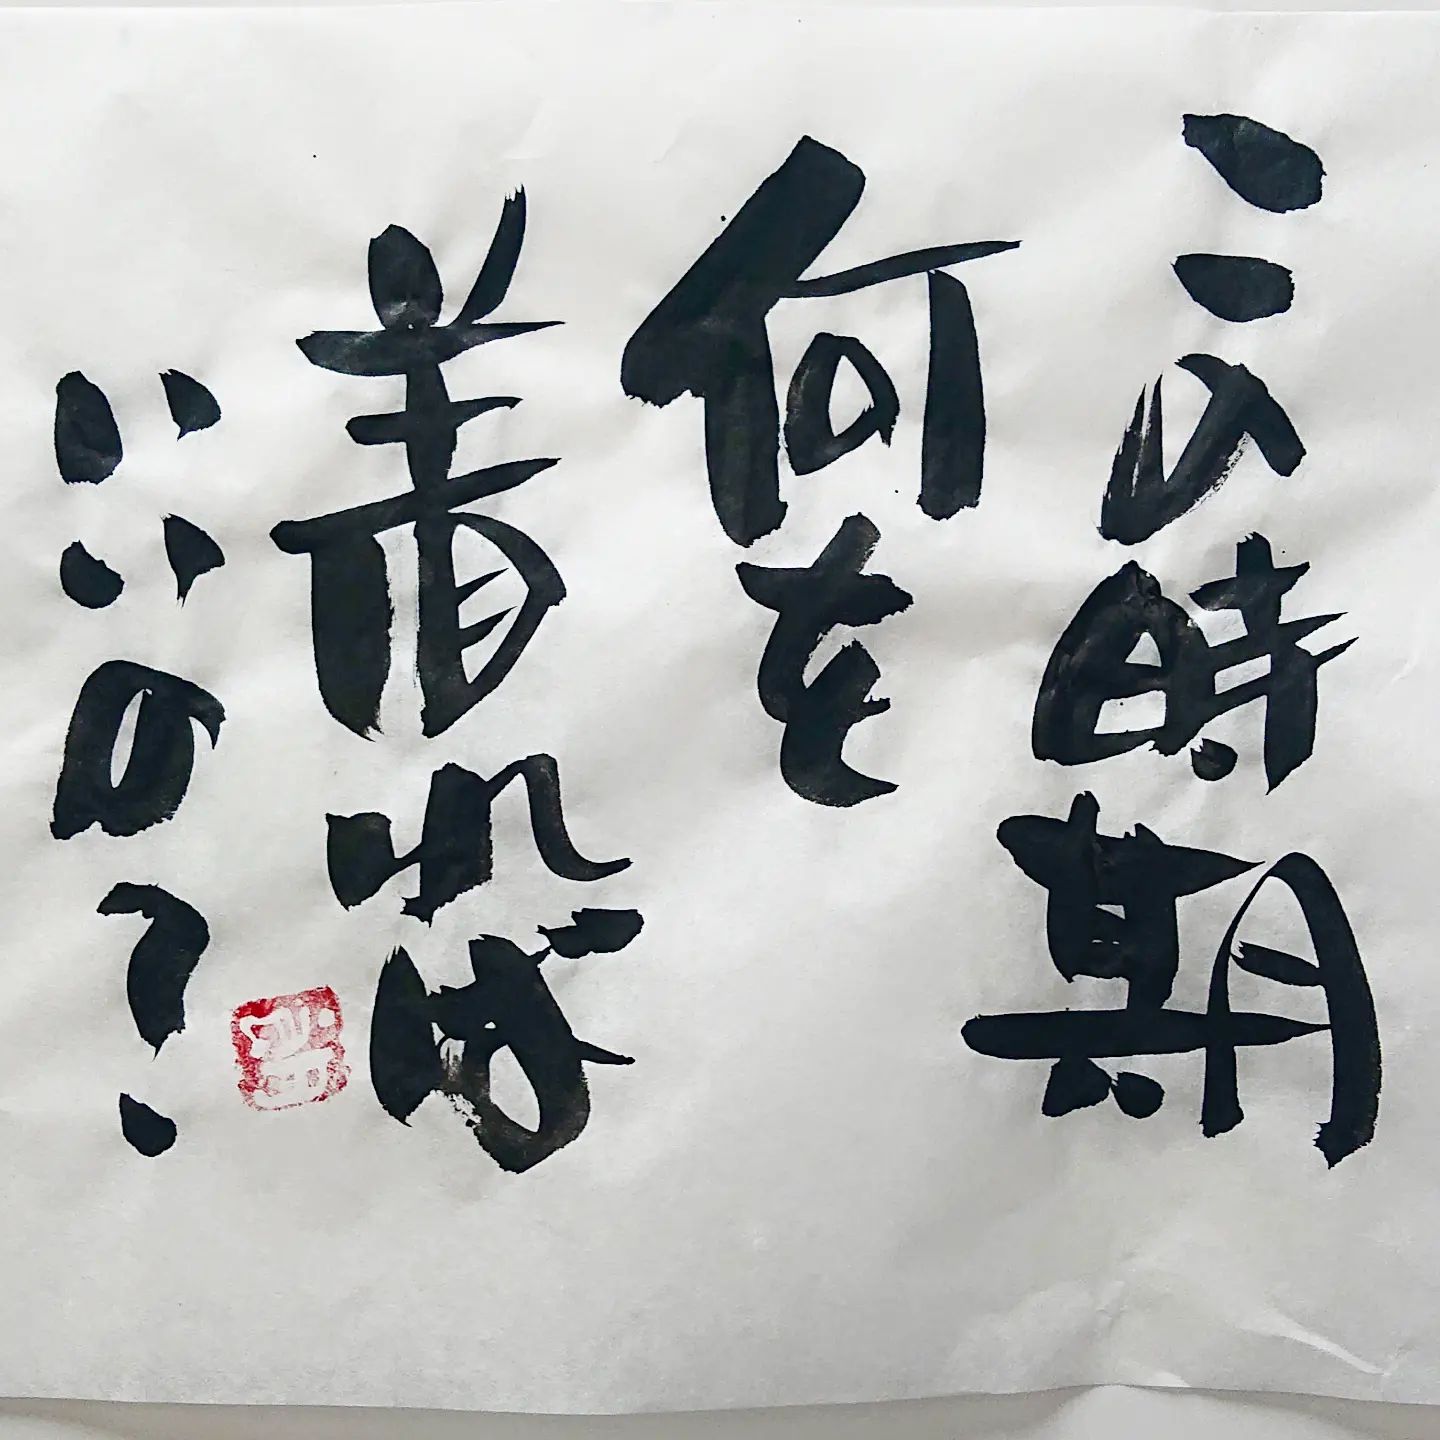 この時期
何を
着れば
いいの?